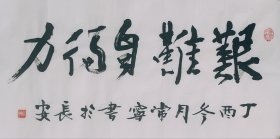 艱難自得力
丁酉冬月寧書於長安